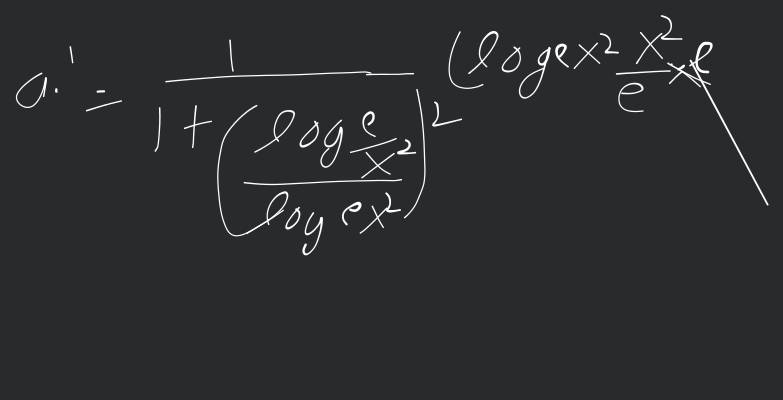 a.' = \frac{1}{1 + \left( \frac{\log \frac{e}{x^2}}{\log ex^2} \right)^2} (\log ex^2 \frac{x^2}{e} × e